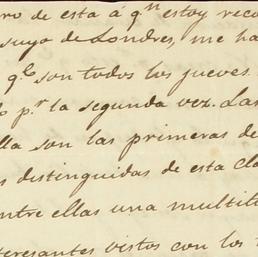 ro de esta á qn estoy reco
suyo de Londres, me ha
qe son todos los jueves.
o pr la segunda vez. Las
lla son las primeras de
s distinguidas de esta cla
ntre ellas una multit
teresantes vistos con los